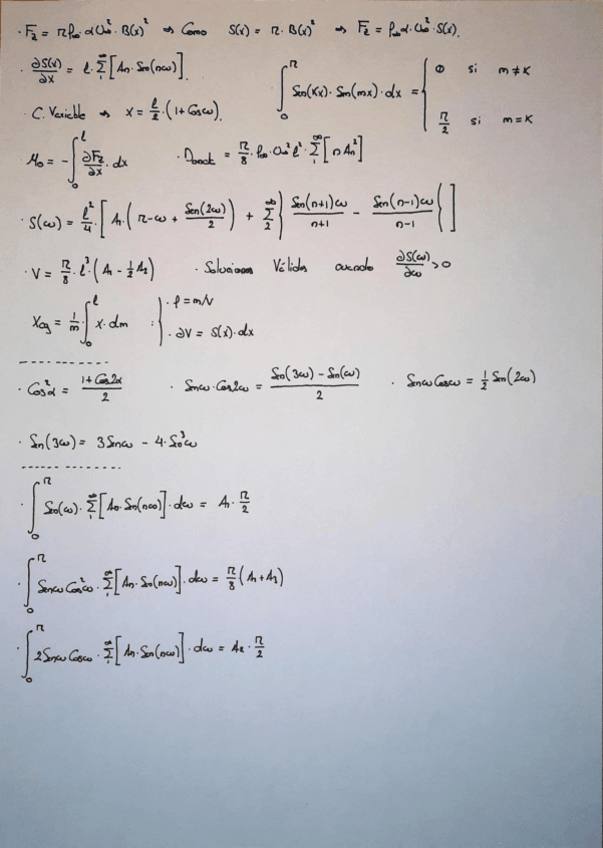 · F_z = π ρ∞ · α U∞² · B(x)² ⇒ Como S(x) = π · B(x)² ⇒ F_z = ρ∞ α · U∞² · S(x).
· ∂S(x)/∂x = l · Σ₁^∞ [An · Sen(nω)]. ∫₀^π Sen(Kx) · Sen(mx) · dx = { 0 si m ≠ K ; π/2 si m = K
· C. Variable ⇒ x = l/2 · (1 + Cosω).
M₀ = - ∫₀^l ∂F_z/∂x · dx · D = π/8 · ρ∞ · U∞² l² · Σ₁^∞ [n An²]
· S(ω) = l²/4 · [A₁ · (π - ω + Sen(2ω)/2) + Σ₂^∞ { Sen(n+1)ω/n+1 - Sen(n-1)ω/n-1 { ]
· V = π/8 · l³ · (A₁ - 1/2 A₂) · Soluciones Válidas cuando ∂S(ω)/∂ω > 0
Xcg = 1/m ∫₀^l x · dm : { · ρ = m/V ; · ∂V = S(x) · dx
· Cos²α = 1 + Cos2α/2 · Senω · Cos2ω = Sen(3ω) - Sen(ω)/2 · Senω Cosω = 1/2 Sen(2ω)
· Sen(3ω) = 3 Senω - 4 · Sen³ω
· ∫₀^π Sen(ω) · Σ₁^∞ [An · Sen(nω)] · dω = A₁ · π/2
· ∫₀^π Senω Cos²ω · Σ₁^∞ [An · Sen(nω)] · dω = π/8 (A₁ + A₃)
· ∫₀^π 2 Senω Cosω · Σ₁^∞ [An · Sen(nω)] · dω = A₂ · π/2